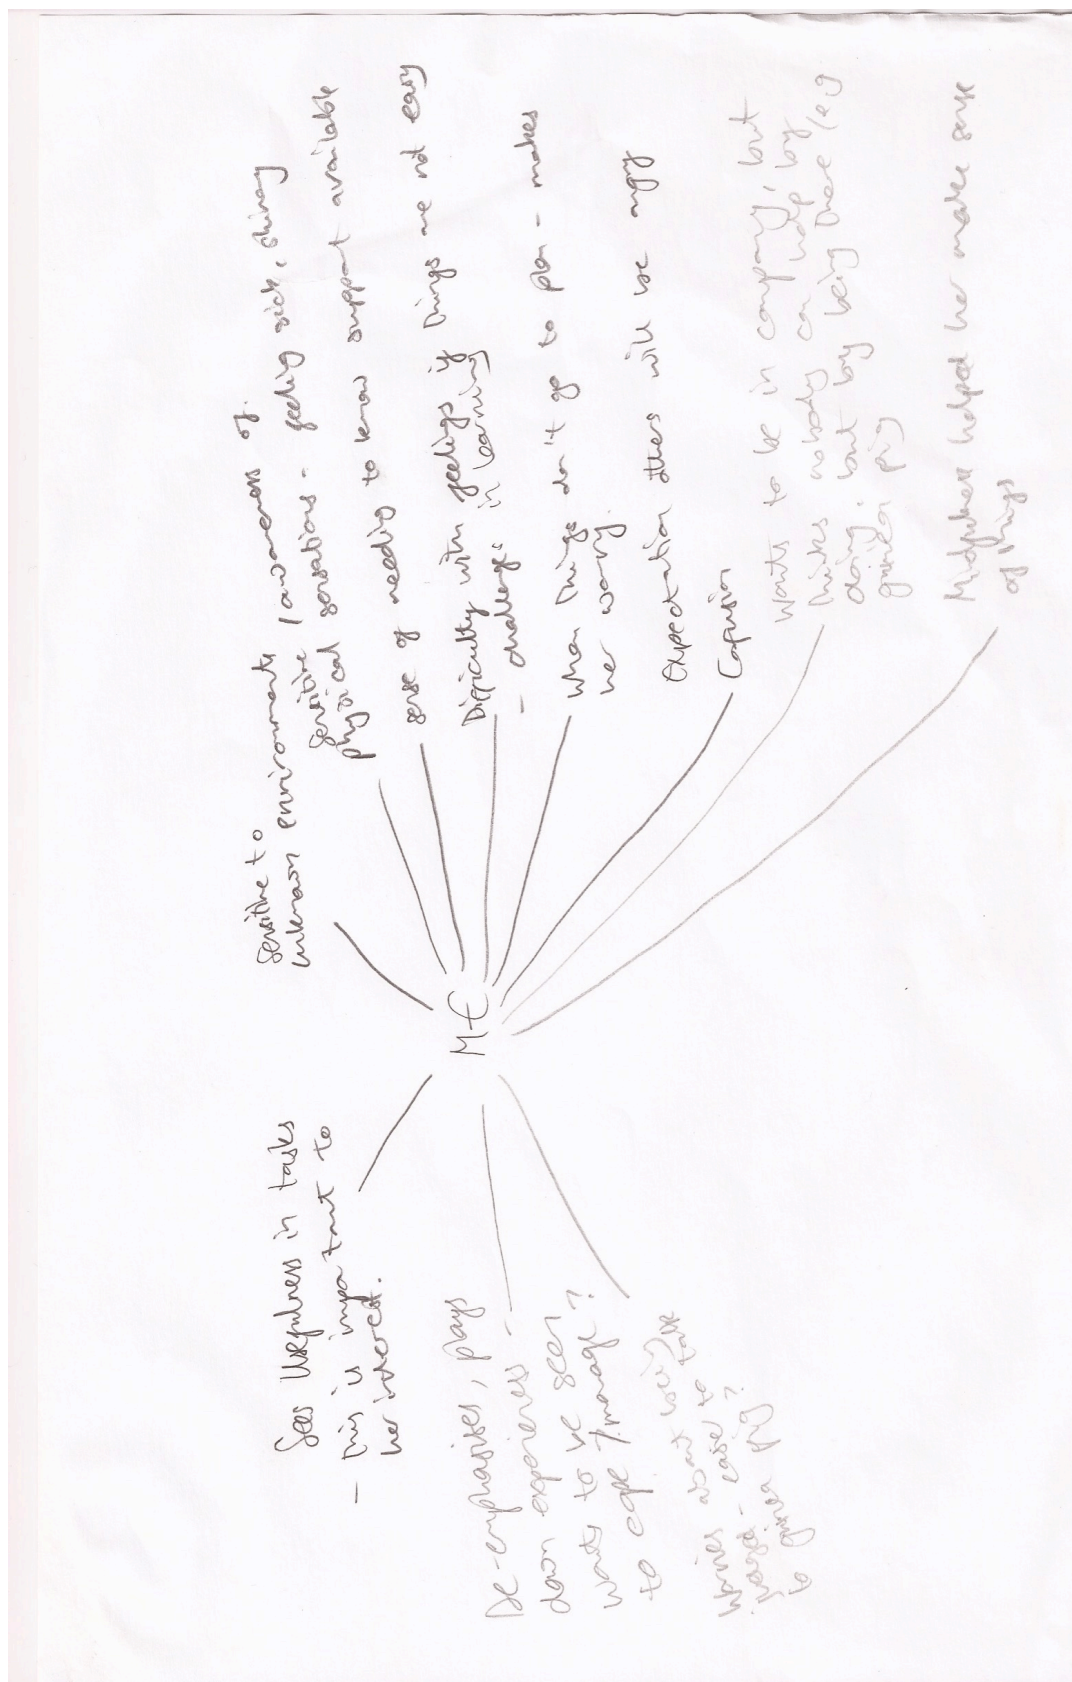 Sees Usefulness in tasks
- this is important to
her interest.
De-emphasises, plays
down experiences -
wants to be seen
to cope / manage?
Worries about being
judged - easier to talk
to guinea pig?
ME
Sensitive to
unknown environments
Sensitive / awareness of
physical sensations - feeling sick, shivery
sense of needing to know support available
Difficulty with feelings if things are not easy
- challenges in learning
When things don't go to plan - makes
her worry.
Expectation others will be angry
Confusion
Wants to be in company, but
thinks nobody can help by
doing, but by being there (eg
guinea pig
Midfulness helped her make sense
of things